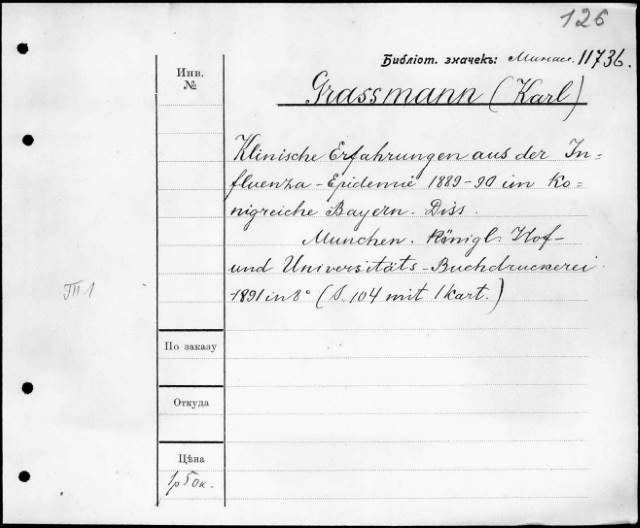 126
Библіот. значекъ: Минас. 11736.
Инв.
№
Grassmann (Karl)
Klinische Erfahrungen aus der In=
fluenza-Epidemie 1889-90 im Kö=
nigreiche Bayern. Diss.
Munchen. Königl. Hof-
und Universitäts-Buchdruckerei
1891 in 8° (S. 104 mit 1 Kart.)
По заказу
Откуда
Цѣна
1р 50к.